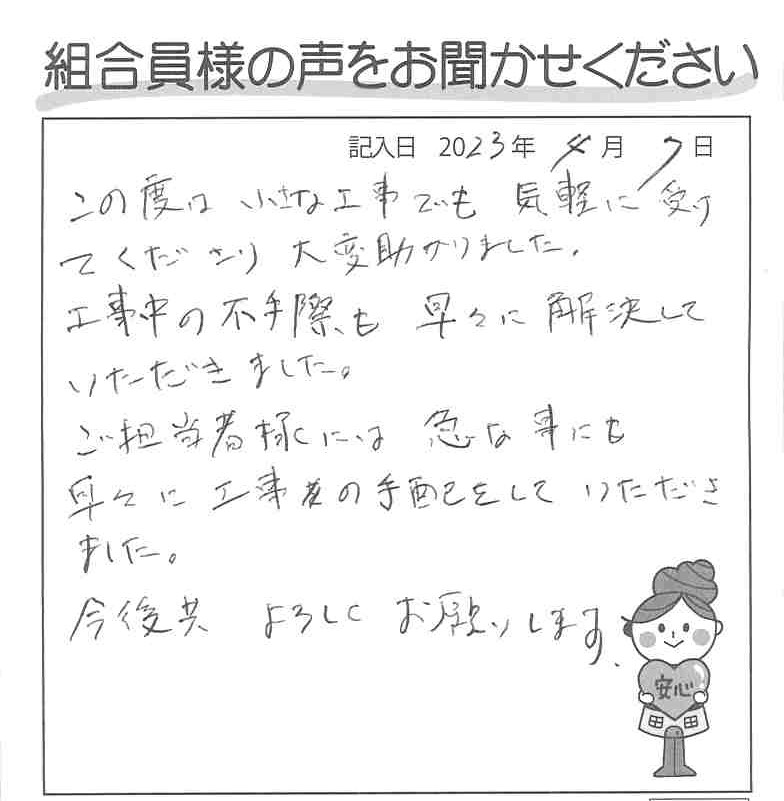 組合員様の声をお聞かせください
記入日 2023年 4月 7日
この度は 小さな工事でも 気軽に 受け
てくださり 大変助かりました。
工事中の不手際も 早々に 解決して
いただきました。
ご担当者様には 急な事にも
早々に 工事の手配をして いただき
ました。
今後共 よろしく お願いします.
安心